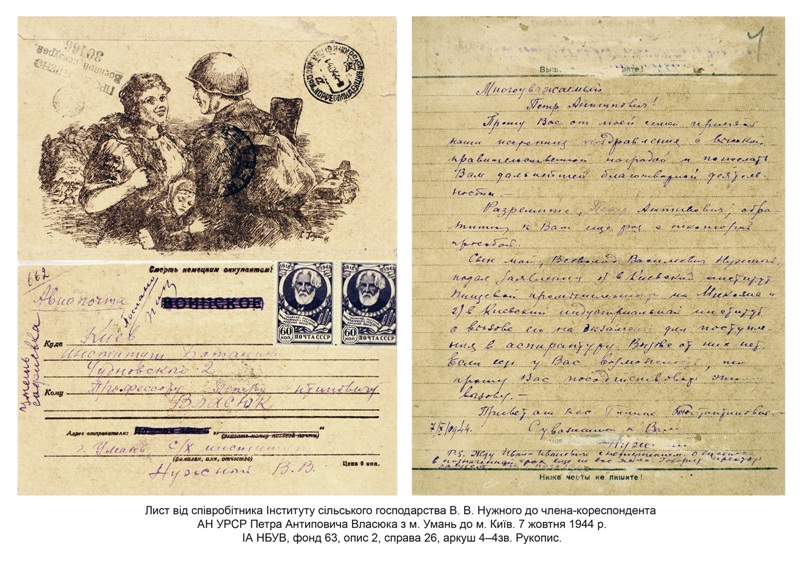 ПРОВЕРЕНО
Военной цензурой
30166
Смерть немецким оккупантам!
662
Авиапочта
ВОИНСКОЕ
60
КОП
ПОЧТА СССР
60
КОП
ПОЧТА СССР
Куда Киев
Институт Ботаники
Чудновского 2
Кому Профессору Петру Антиповичу
ВЛАСЮК
Адрес отправителя:
г. Умань, с/х институт
(фамилия, имя, отчество)
Нужной В. В.
Цена 6 коп.
4
Выш
Многоуважаемый
Петр Антипович!
Прошу Вас от моей семьи принять
наши искренние поздравления с высокой
правительственной наградой и пожелать
Вам дальнейшей благотворной деятель-
ности.
Разрешите, Петр Антипович, обра-
титься к Вам еще раз с некоторой
просьбой.
Сын мой, Всеволод Васильевич Нужный
подал заявления 1) в Киевский институт
Пищевой промышленности на Микояна и
2) в Киевский индустриальный институт
о вызове его на экзамены для поступле-
ния в аспирантуру. Вызова от них нет
если еще у Вас возможность, то
прошу Вас посодействовать этому
вызову.—
Привет от нас Галине Константиновне.—
7/X/1944. С уважением к Вам
P.S. Жду Ивана Ивановича
Ниже черты не пишите!
Лист від співробітника Інституту сільського господарства В. В. Нужного до члена-кореспондента
АН УРСР Петра Антиповича Власюка з м. Умань до м. Київ. 7 жовтня 1944 р.
ІА НБУВ, фонд 63, опис 2, справа 26, аркуш 4–4зв. Рукопис.